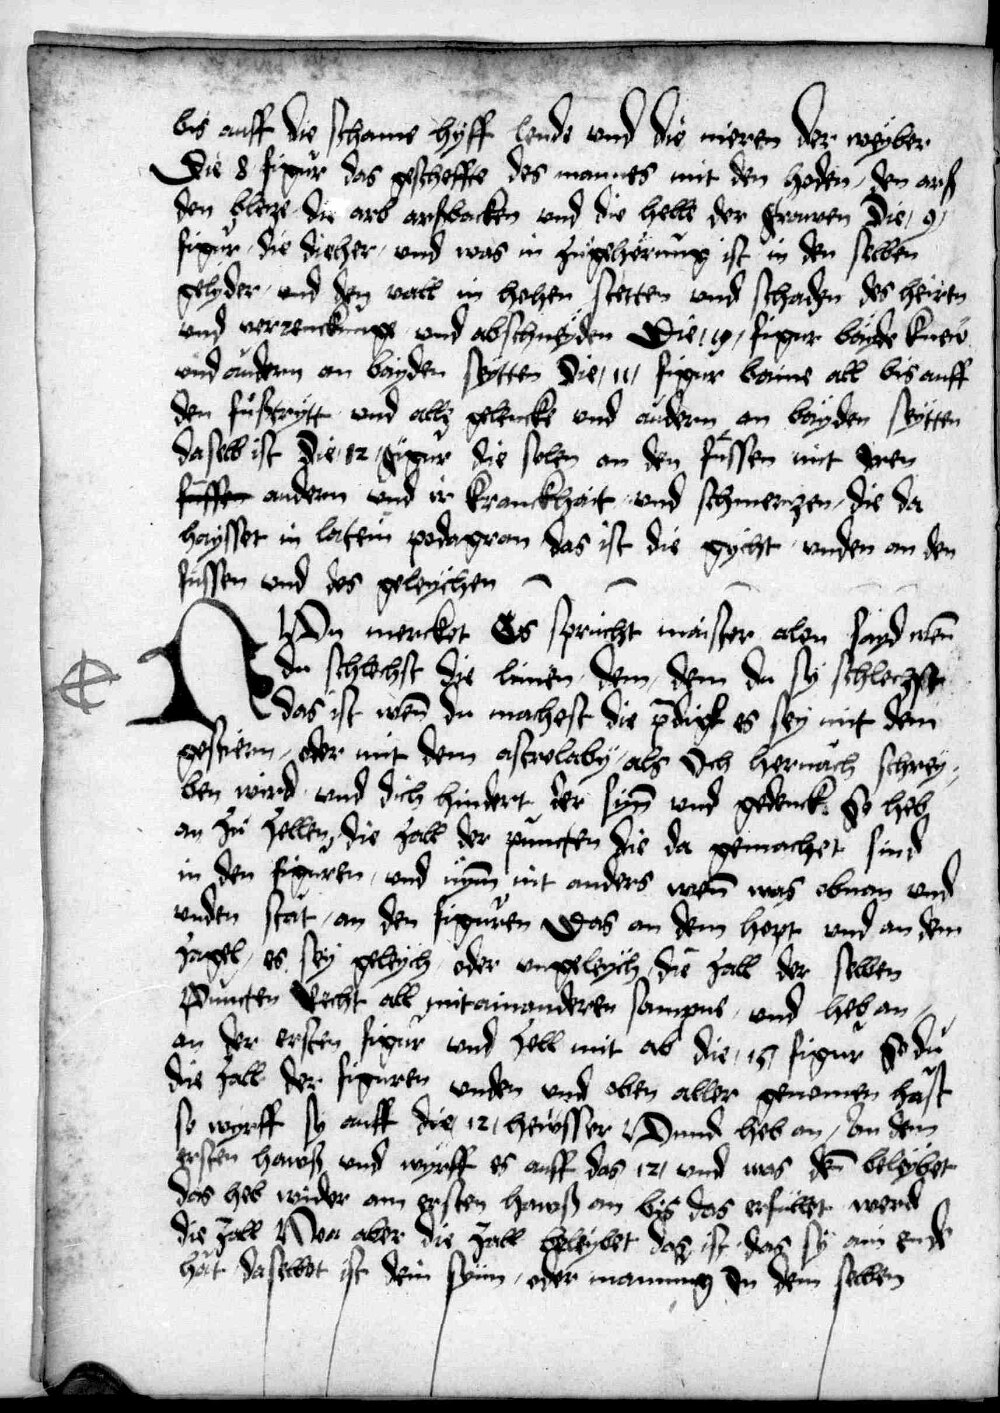 bis auff die schame hyff lende vnd die nieren der weyber
Die 8 figur das gescheffte des mannes mit den hoden, den arß
den bleze die arb arsbacken vnd die helle der frawen Die, 9,
figur, die diecher, vnd was in zugehörung ist in den selben
gelyder, vnd den vall in hohen stetten vnd schaden des heiren
vnd verrenckunge vnd abschneyden Die, 10, figur bayde knew
vnd audern an bayden seytten Die, 11, figur baine all bis auff
den fußtrytt vnd alle gelencke vnd audern an bayden seytten
daselb ist Die, 12, figur die solen an den füssen mit iren
füssen andern vnd ir kranckhait vnd schmerczen, die da
haysset in latein podagran das ist die gycht vnden an den
füssen vnd des geleychen
NVn mercket Es spricht maister alen sayd wen̄
du schlechst die linien, dem, dem du sy schlechst
das ist wen̄ du machest die p̄digk es sey mit dem
gestiern, oder mit dem astrolaby, als ich hernach schrey,
ben wird vnd dich hindert der syn̄ vnd gedenck. So heb
an zu zellen, die zall der puncten die da gemachet sind
in den figuren, vnd nym̄ nit anders wen̄ was obnan vnd
vnden stat, an den figuren Das an dem hopt vnd an dem
zagel, es sey geleych, oder vngeleych, die zall der selben
Puncten Recht all mitainanderen sampne, vnd heb an,
an der ersten figur vnd zell mit ab die, 15, figur So du
die zall der figuren vnden vnd oben aller genomen hast
so wyrff sy auff die, 12, hewsser Vnnd heb an, an dem
ersten hawß vnd wyrff es auff das 12, vnd was den̄ beleybet
das heb wider am ersten hawß an bis das erfüllet werd
die zall Wa aber die zall beleybet das ist das sy am ende
hat daselbst ist dein synn, oder mainung In dem selben